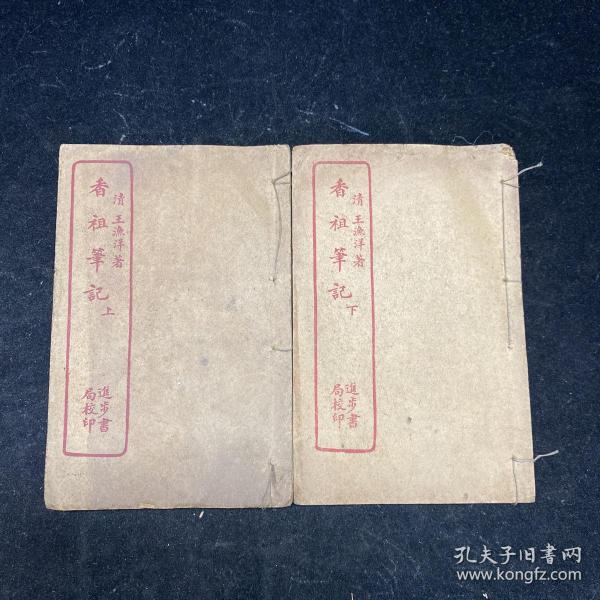 清 王漁洋著
香祖筆記 上
進步書
局校印
清 王漁洋著
香祖筆記 下
進步書
局校印
孔夫子旧书网
www.kongfz.com